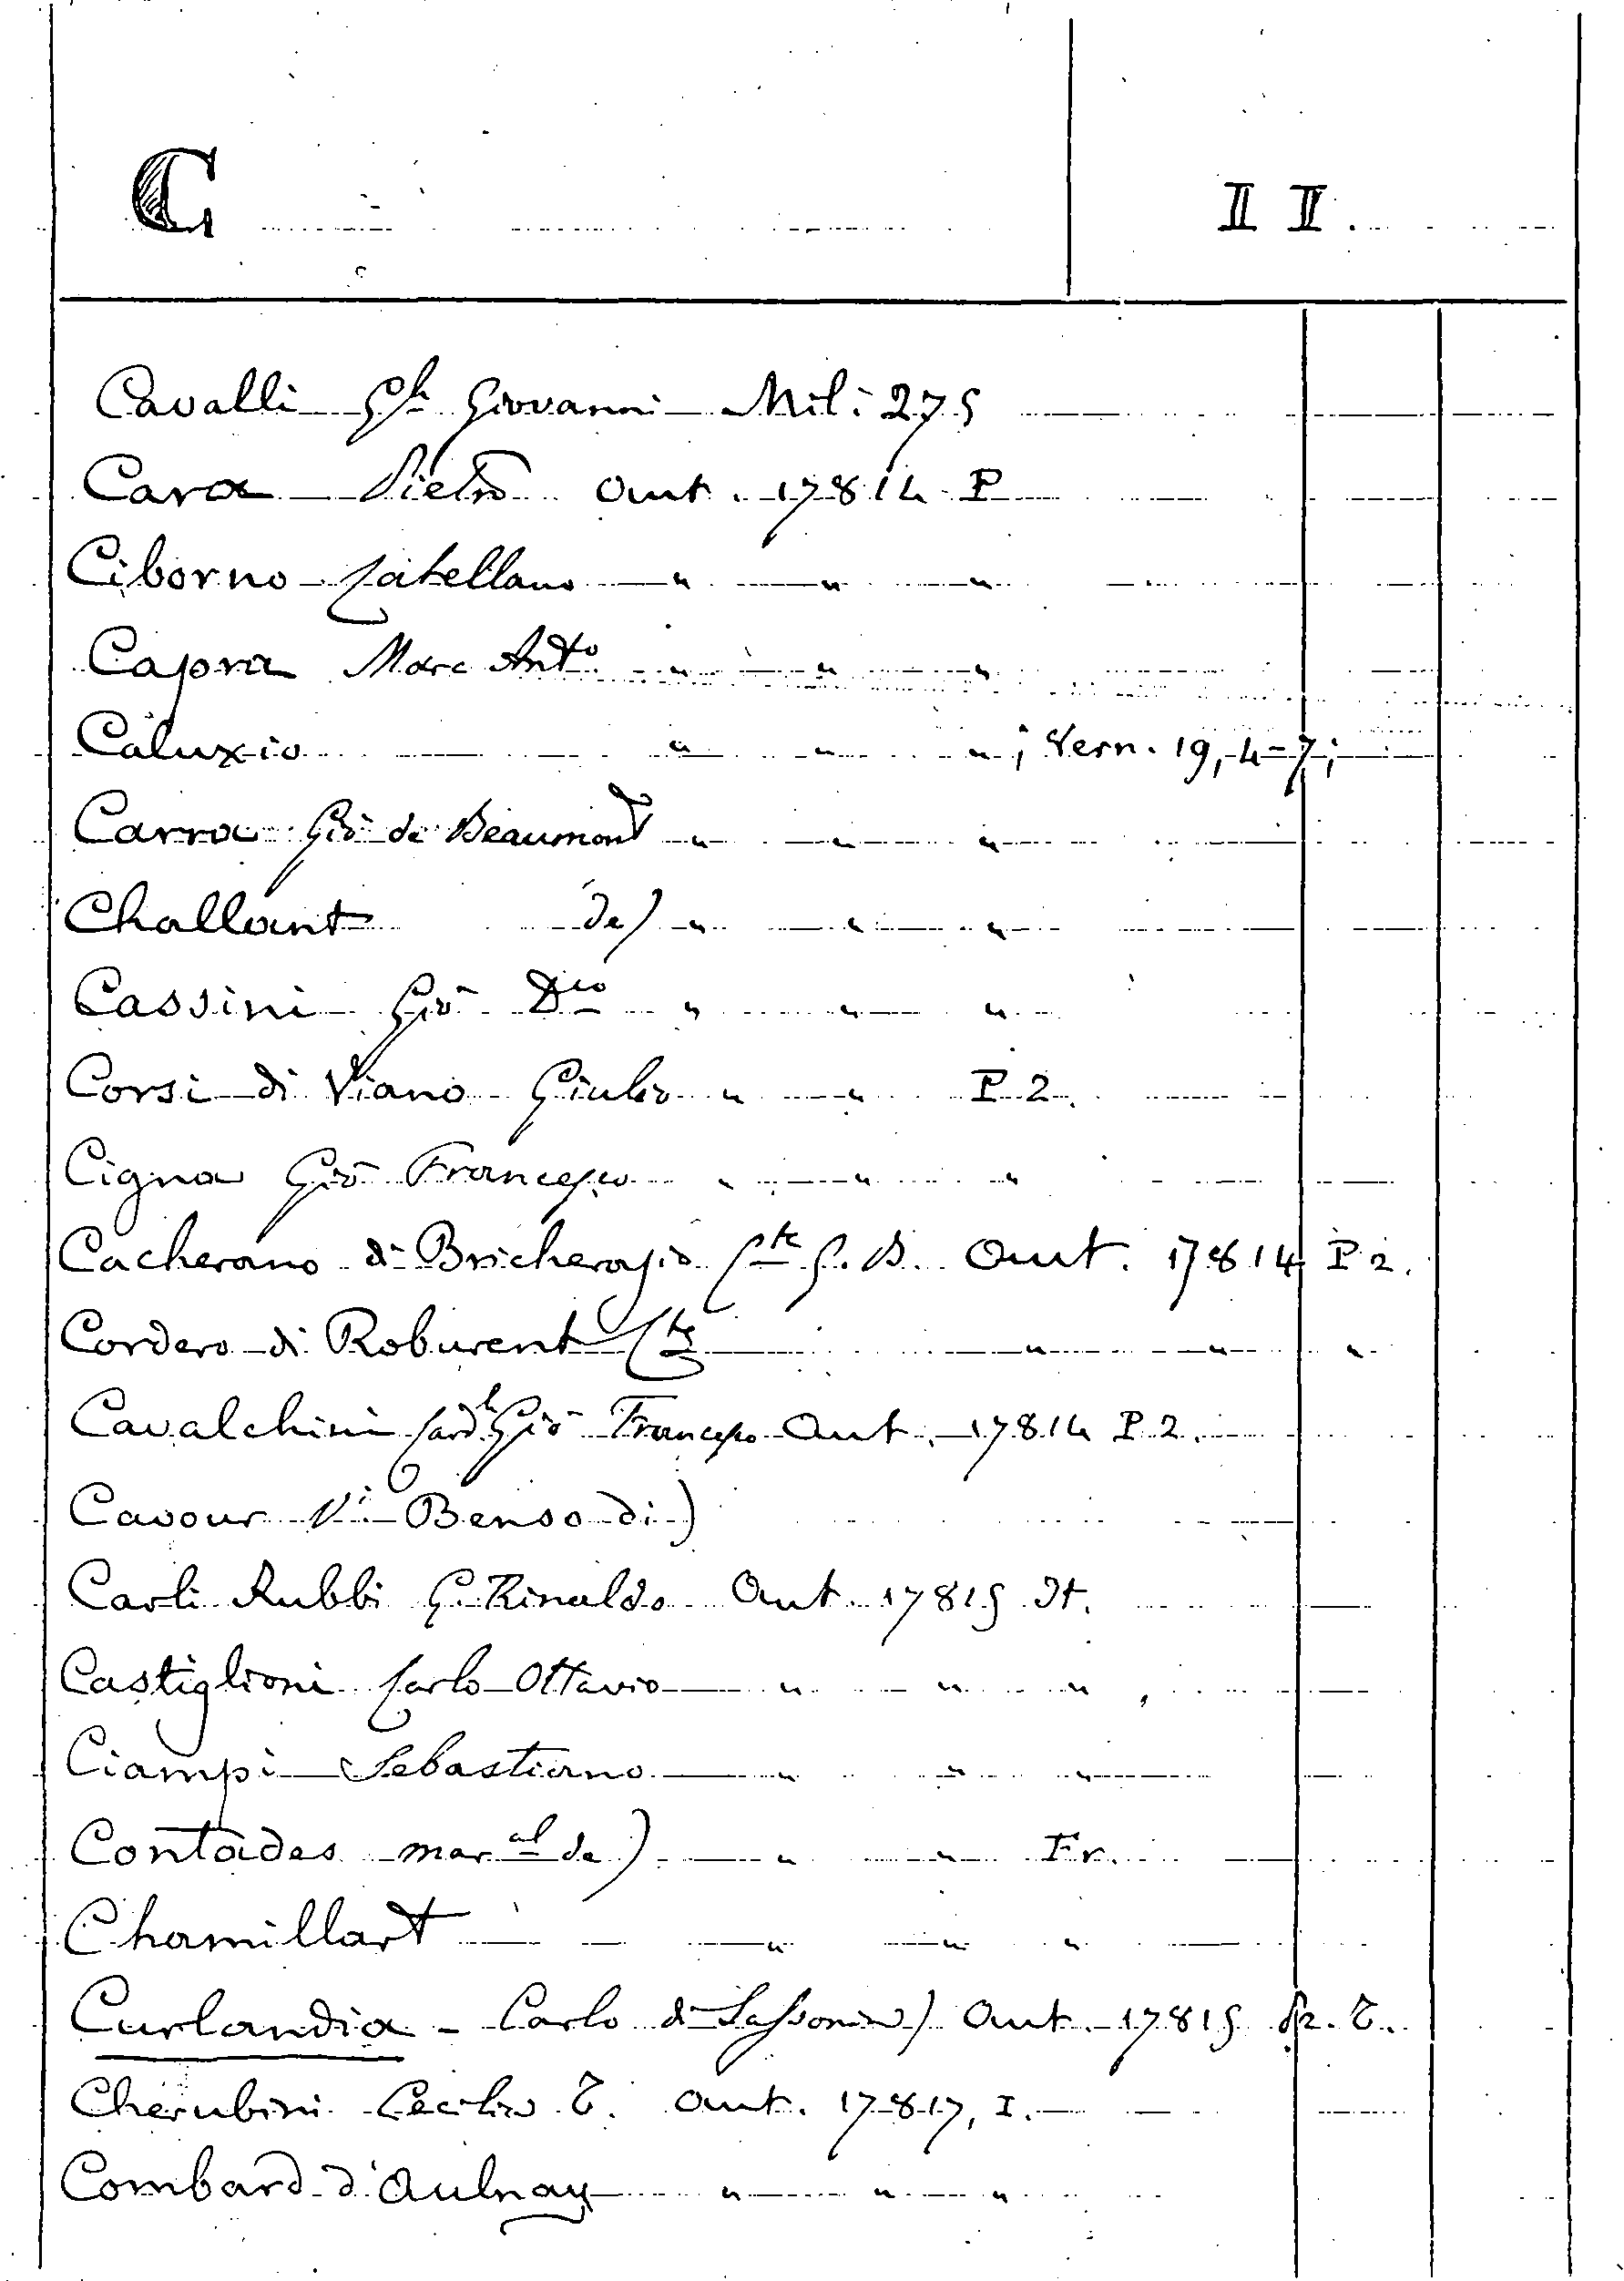 C II.
Cavalli Gle Giovanni Mil: 275
Cara Pietro Aut. 17814 P
Ciborno Catellano " " "
Capra Marc Anto " " "
Caluxio " " " ; Vern. 19, 4-7;
Carra Gio de Beaumont " " "
Challant de) " " "
Cassini Gio Dco " " "
Corsi di Viano Giulio " " P 2.
Cigna Gio Francesco " " "
Cacherano di Bricherasio Cte G. B. Aut. 17814 P 2.
Cordero di Roburent Cte " " "
Cavalchini Cardl Gio Francesco Aut. 17814 P 2.
Cavour Vi Benso di)
Carli Rubbi G. Rinaldo Aut. 17815 It.
Castiglioni Carlo Ottavio " " " ,
Ciampi Sebastiano " " "
Contades maral de) " " Fr.
Chamillart " " "
Curlandia - Carlo di Sassonia) Aut. 17815 T.
Cherubini T. Aut. 17817, I.
Combard d'Aulnay " " "